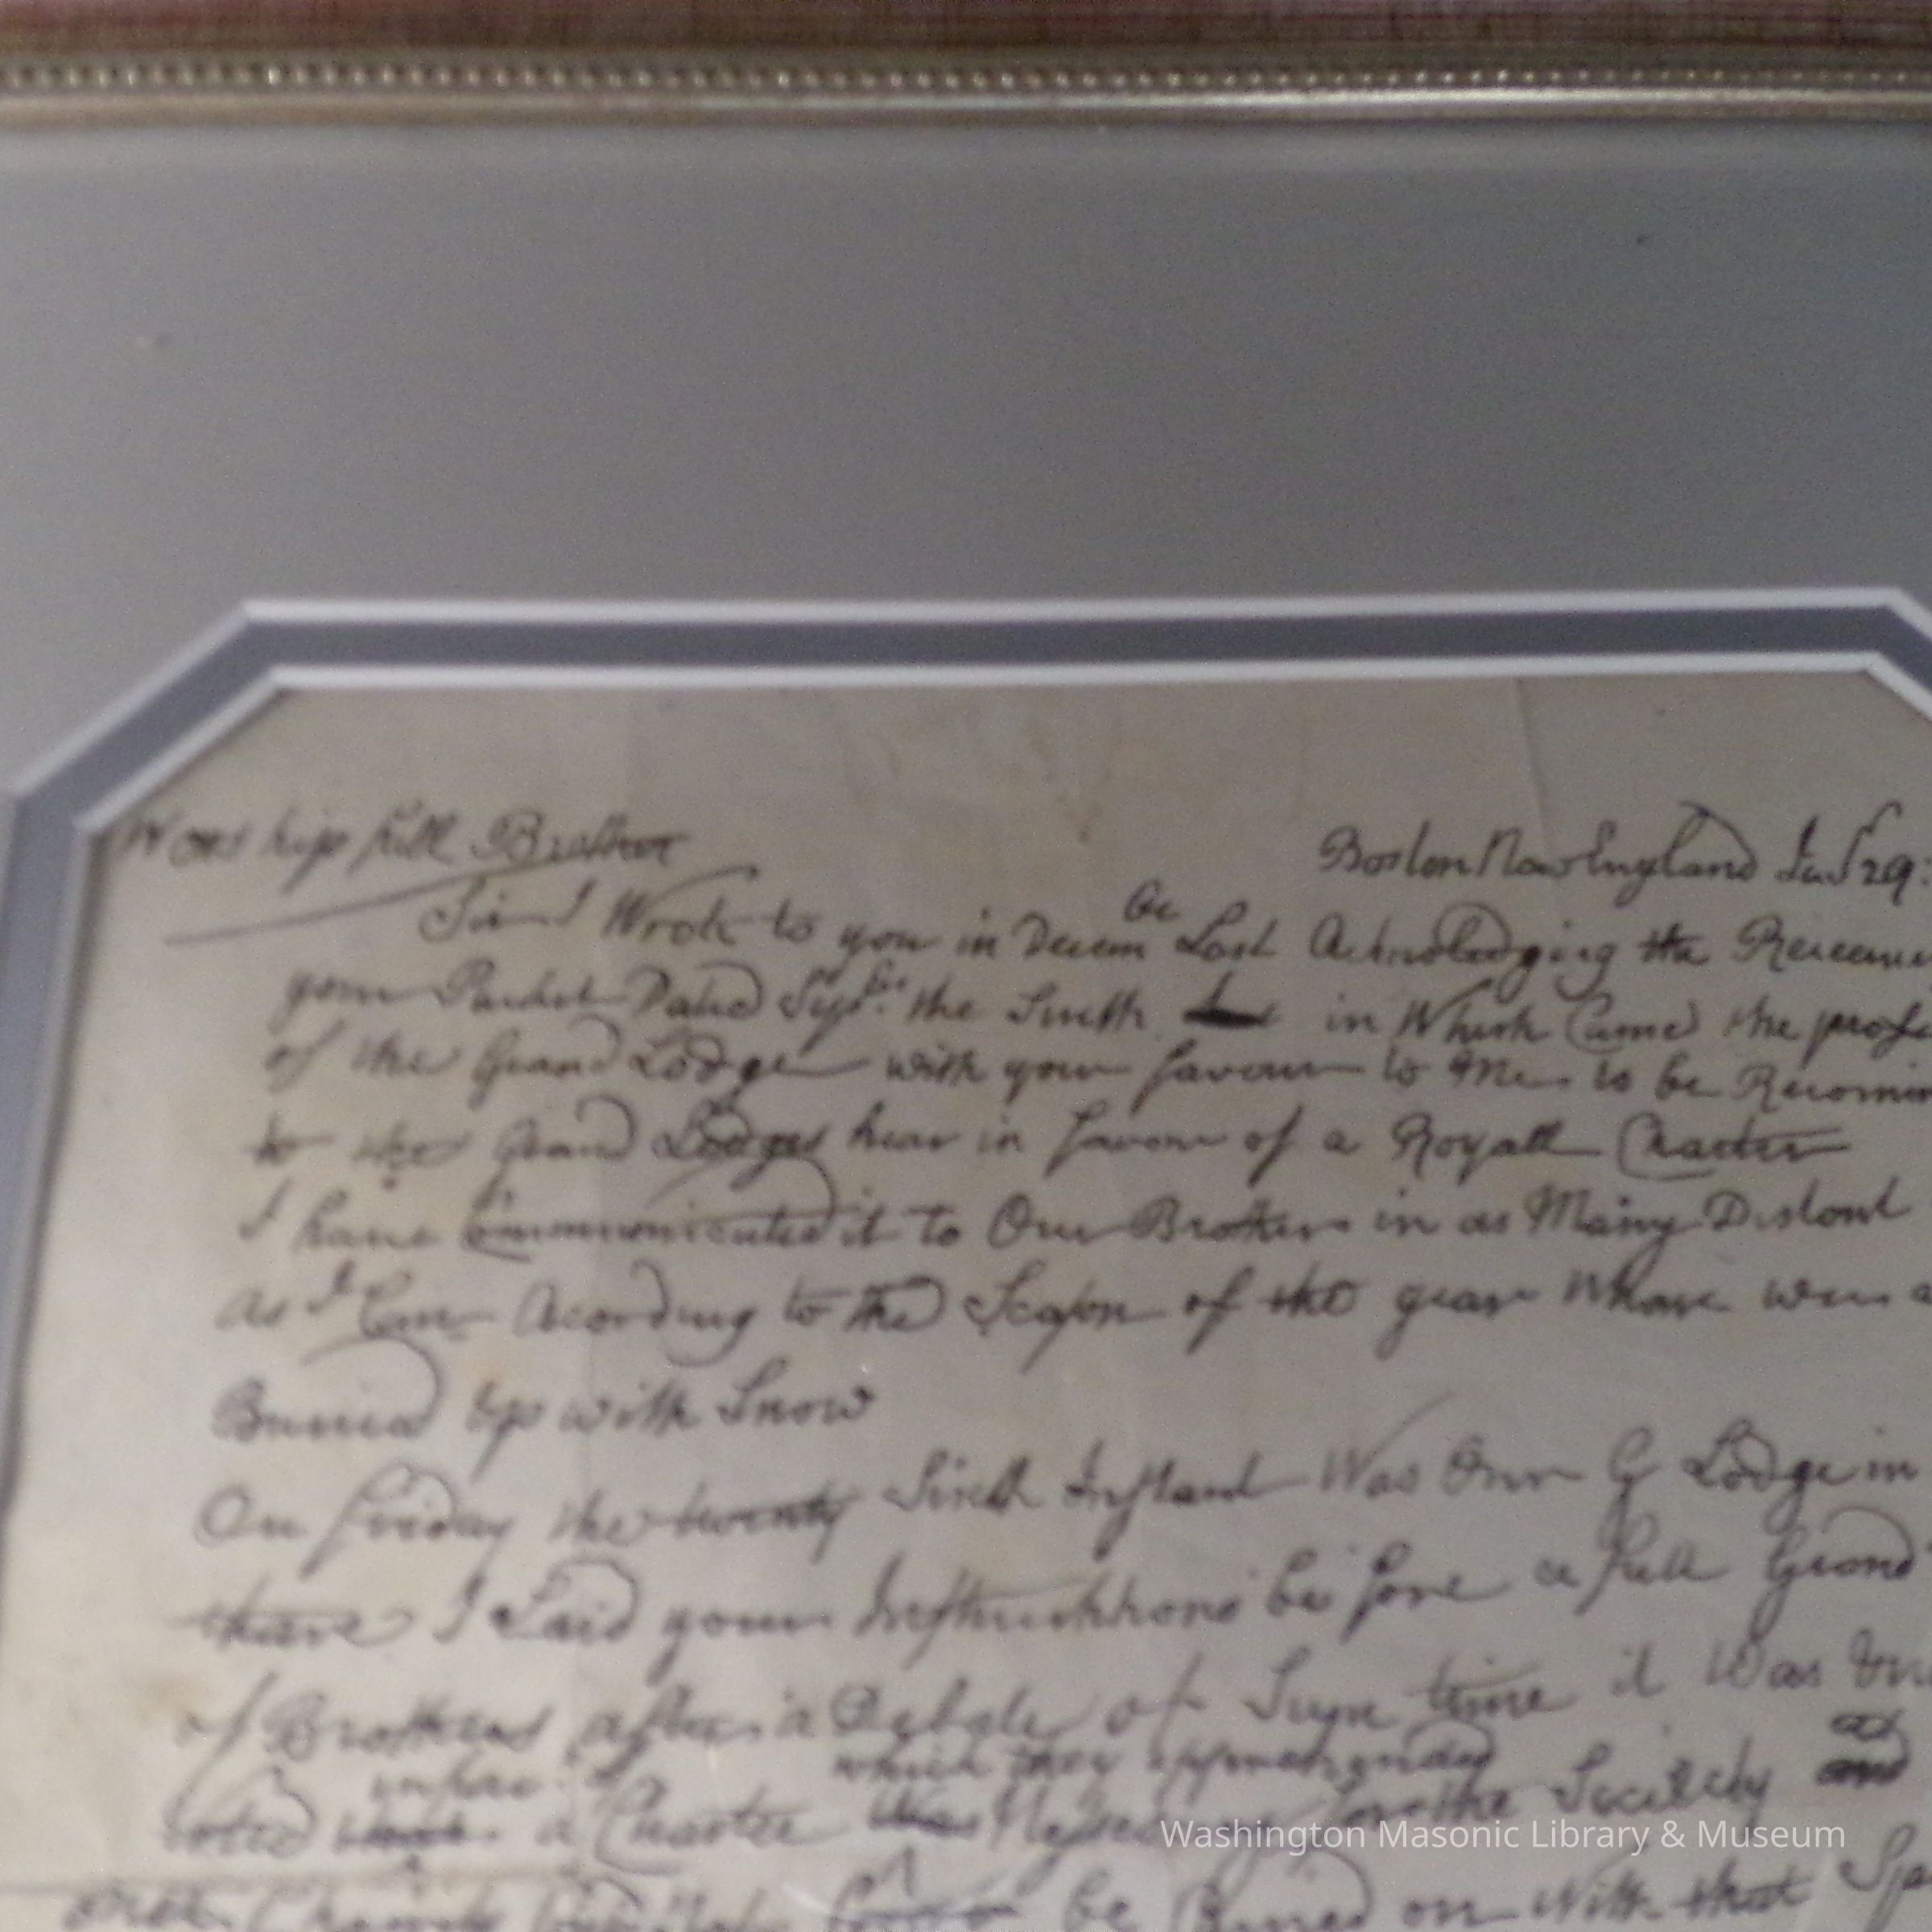 Worshipfull Brother
Boston New England Jany 29:
Sir I Wrote to you in Decem be Last Acknolledging the
your Packet Dated Sepbr the Sixth in Which Came the
of the Grand Lodge with your favour to Me to be
to the Grand Lodges hear in favour of a Royall Charter
I have Communicated it to Our Brothers in as Many Distont
As I Can Acording to the Season of the year Whare
Buried Up with Snow
On friday the twenty Sixth Instant Was Our G Lodge in
thare I Laid your Instrucktions be fore a full Grand
of Brothers after a Debate of Sum time it Was
in faver of which they
voted a Charter for the and
be on With that
Washington Masonic Library & Museum